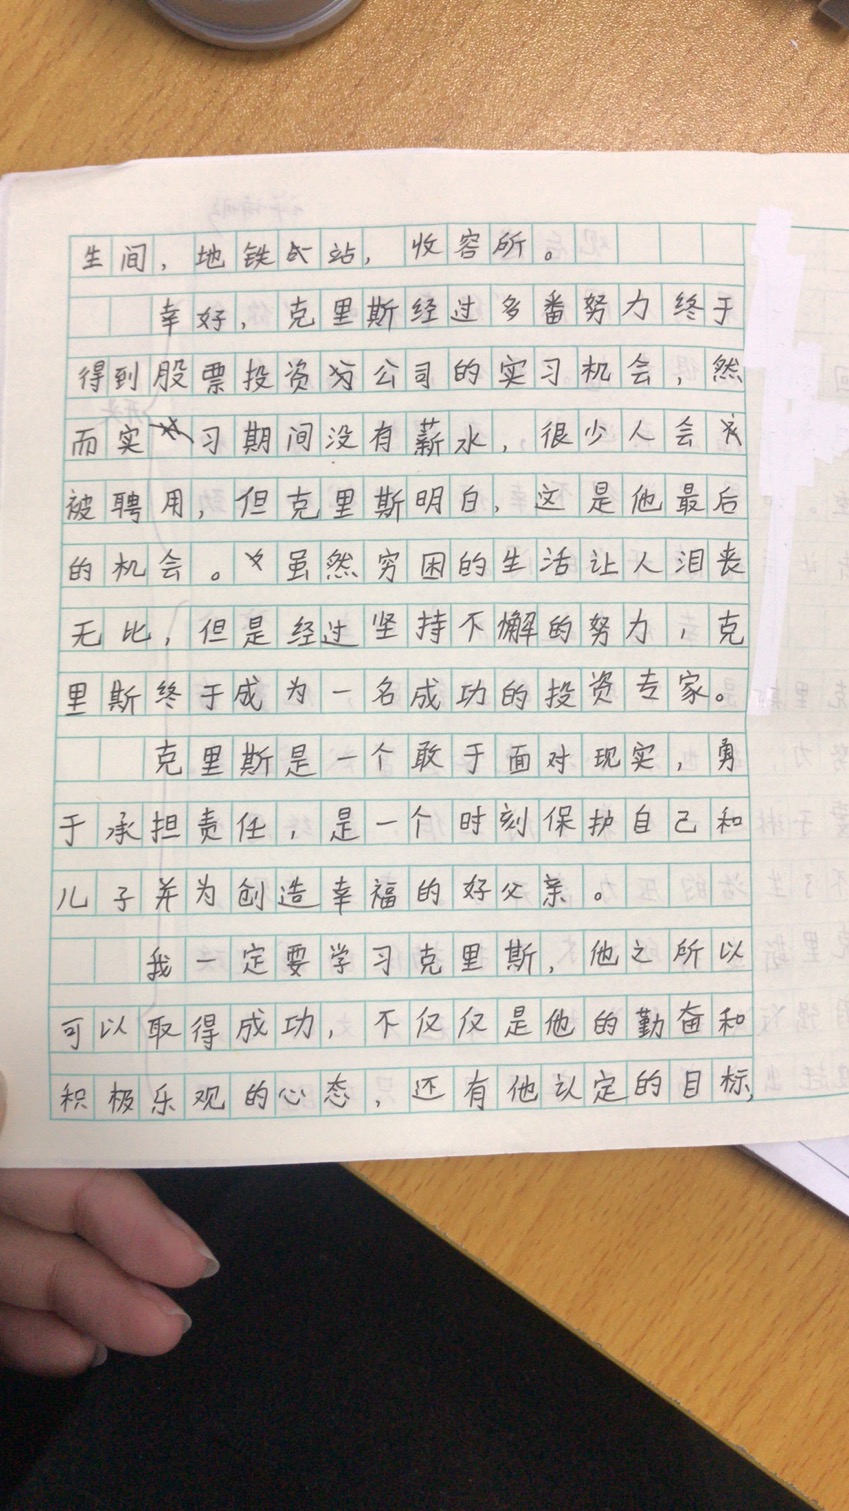 生间，地铁站，收容所。
幸好，克里斯经过多番努力终于
得到股票投资公司的实习机会，然
而实习期间没有薪水，很少人会
被聘用，但克里斯明白，这是他最后
的机会。虽然穷困的生活让人泪丧
无比，但是经过坚持不懈的努力，克
里斯终于成为一名成功的投资专家。
克里斯是一个敢于面对现实，勇
于承担责任，是一个时刻保护自己和
儿子并为创造幸福的好父亲。
我一定要学习克里斯，他之所以
可以取得成功，不仅仅是他的勤奋和
积极乐观的心态，还有他认定的目标，